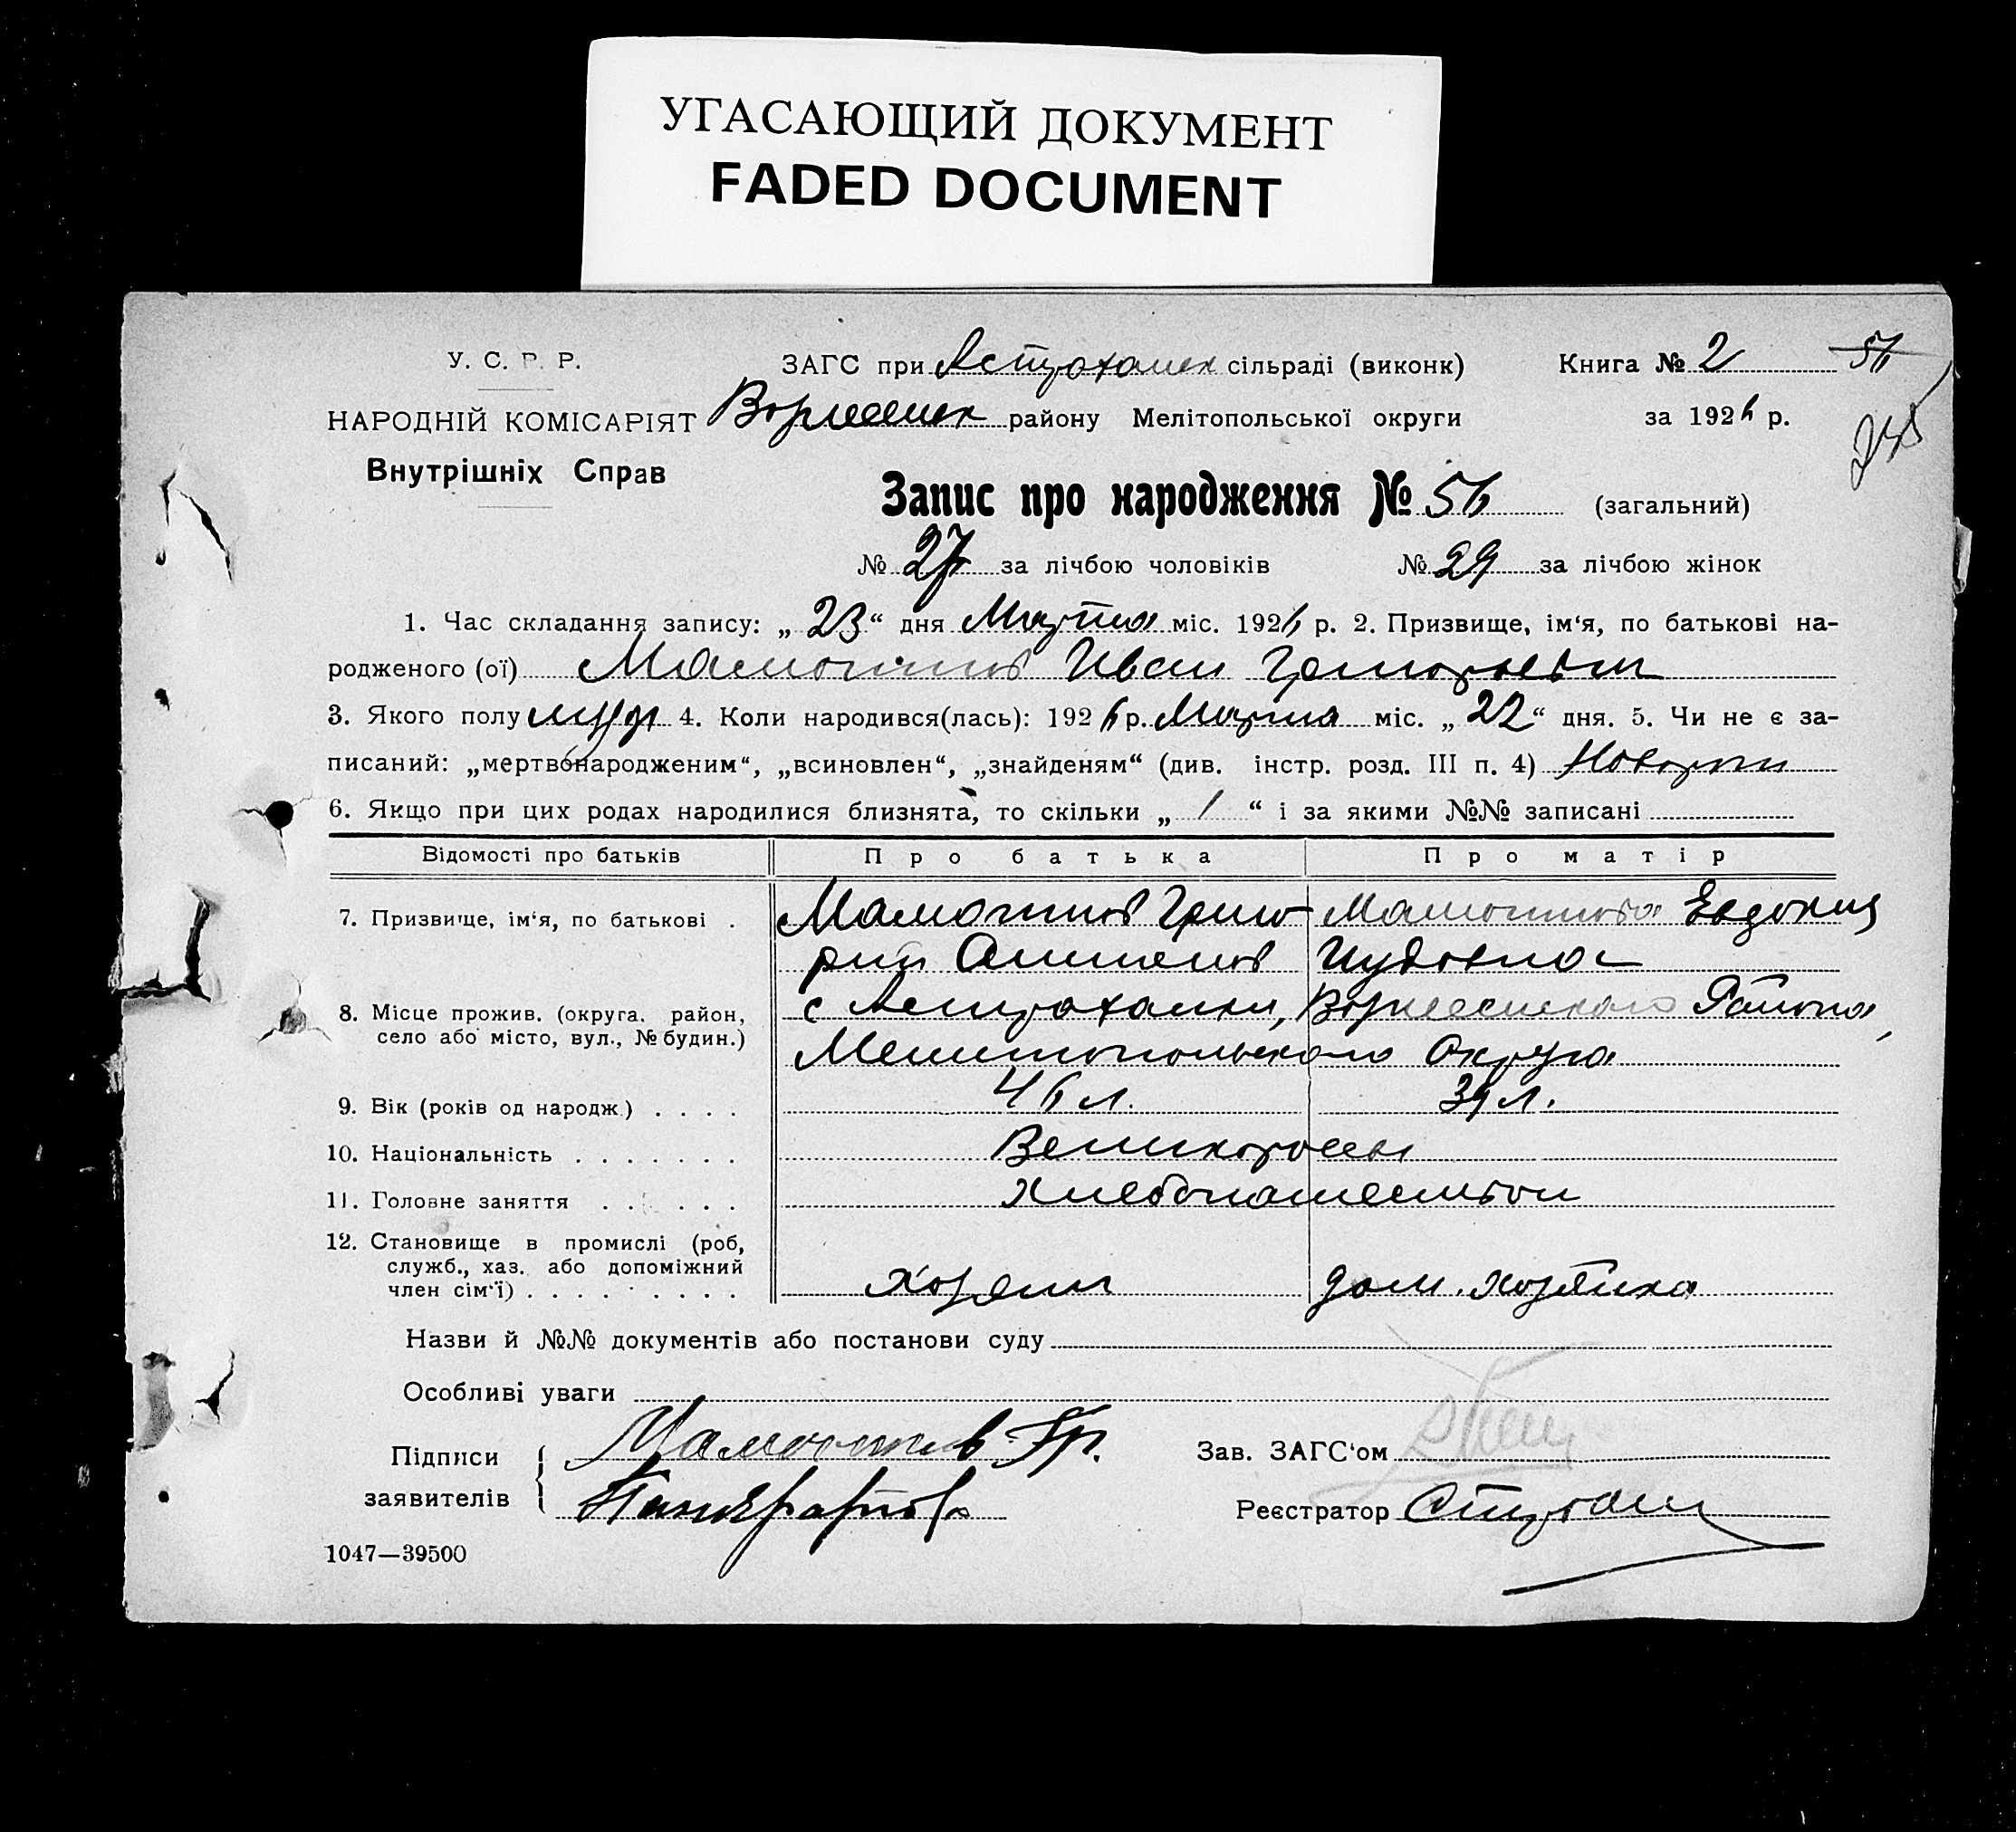 УГАСАЮЩИЙ ДОКУМЕНТ
FADED DOCUMENT
У. С. Р. Р. ЗАГС при Астрахонск сільраді (виконк) Книга № 2 56
НАРОДНІЙ КОМІСАРІЯТ району Мелітопольської округи за 1926 р.
Внутрішніх Справ
Запис про народження № 56 (загальний)
№ 27 за лічбою чоловіків № 29 за лічбою жінок
1. Час складання запису: „ 23 “ дня Марта міс. 1926 р. 2. Призвище, ім‘я, по батькові на-
родженого (ої) Мамонтов Иван Григорьевич
3. Якого полу муж 4. Коли народився(лась): 1926 р. Марта міс. „ 22 “ дня. 5. Чи не є за-
писаний: „мертвонародженим“, „всиновлен“, „знайденям“ (див. інстр. розд. III п. 4)
6. Якщо при цих родах народилися близнята, то скільки „ 1 “ і за якими №№ записані
Відомості про батьків Про батька Про матір
7. Призвище, ім‘я, по батькові . Мамонтов Григо- Мамонтова Евдокия
рий
8. Місце прожив. (округа, район, с Астраханки, Района,
село або місто, вул., № будин.) Мелитопольского Округа
9. Вік (років од народж.) . . . . 46 л. 39 л.
10. Національність . . . . . . . Великороссы
11. Головне заняття . . . . . . Хлебопашеством
12. Становище в промислі (роб,
служб., хаз. або допоміжний
член сім‘ї) . . . . . . . . . Хозяин дом. хозяйка
Назви й №№ документів або постанови суду
Особливі уваги
Підписи Мамонтов Гр. Зав. ЗАГС‘ом
заявителів Реєстратор
1047—39500